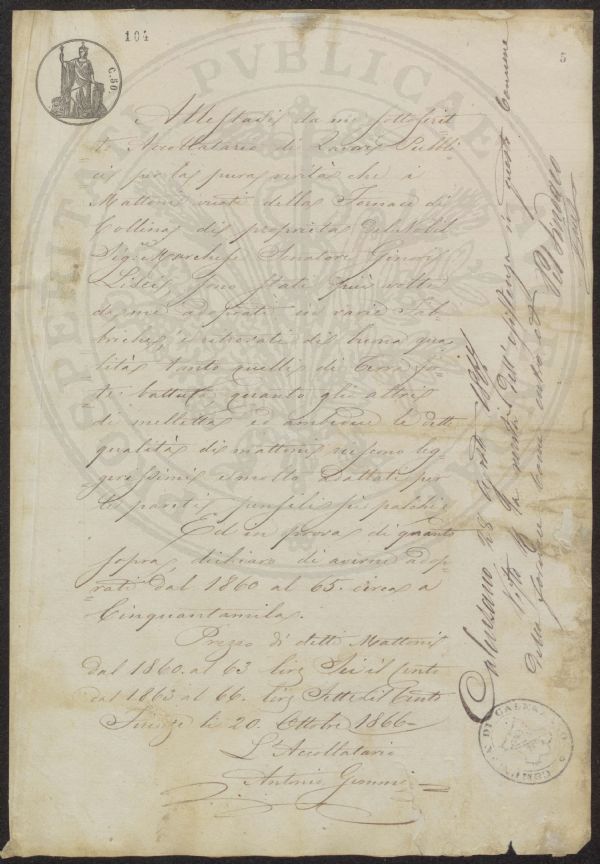 104
5
C. 50.
PROSPERITATI PVBLICAE
Attestasi da me sottoscrit=
to Accollatario di Lavori Pubbli
ci per la pura verità che i
Mattoni vuoti della Fornace di
Collina di proprietà del Nobil
Sig.r Marchese Senatore Ginori
Lisci, sono stati più volte
da me adoprati in varie Fab=
briche, e ritrovati di buona qua
lità tanto quelli di Terra for=
te battuta quanto gli altri
di melletta ed ambedue le dette
qualità di mattoni riescono leg
gerissimi e molto adattati per
le pareti, pensili per palchi=
Ed in prova di quanto
sopra dichiaro di averne adop=
rati dal 1860 al 65. circa a
Cinquantamila.
Prezzo di detti Mattoni
dal 1860. al 63 lire Sei il Cento
dal 1863 al 66. lire Sette il Cento
Firenze li 20. Ottobre 1866=
L'Accollatario
Antonio
Calenzano, 28 1867
Visto per la verità dell'esistenza in questo Comune
della fornace
Il Sindaco
COMUNE DI CALENZANO